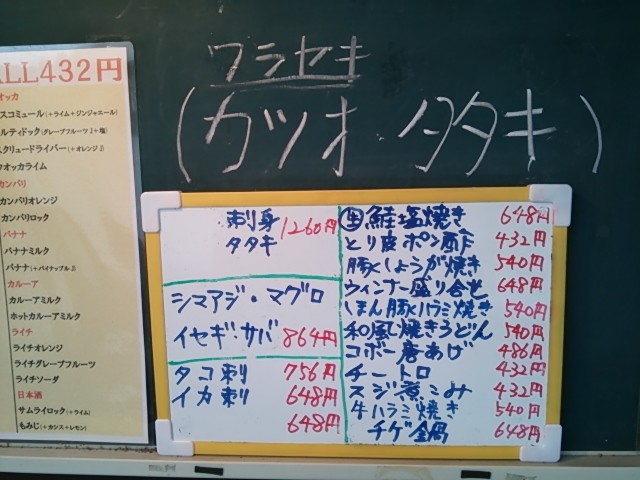 ワラヤキ
(カツオ タタキ)
ALL432円
オッカ
スコミュール(+ライム+ジンジャエール)
ルティドック(グレープフルーツJ+塩)
スクリュードライバー(+オレンジJ)
ウオッカライム
カンパリ
カンパリオレンジ
カンパリロック
バナナ
バナナミルク
バナナ(+パイナップルJ)
カルーア
カルーアミルク
ホットカルーアミルク
ライチ
ライチオレンジ
ライチグレープフルーツ
ライチソーダ
日本酒
サムライロック(+ライム)
もみじ(+カシス+レモン)
刺身 1260円
タタキ
シマアジ・マグロ
イセギ・サバ 864円
タコ刺 756円
イカ刺 648円
648円
生鮭塩焼き 648円
とり皮ポン酢 432円
豚しょうが焼き 540円
ウィンナー盛り合せ 648円
ほん豚ハラミ焼き 540円
和風焼きうどん 540円
ゴボー唐あげ 486円
チートロ 432円
スジ煮こみ 432円
牛ハラミ焼き 540円
チゲ鍋 648円